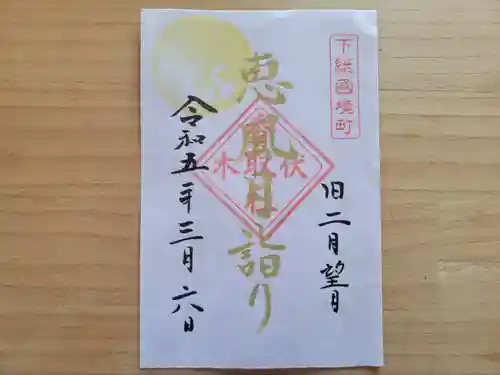 下総國境町
旧二月望月
恵風社詣り
伏
木
令和五年三月六日